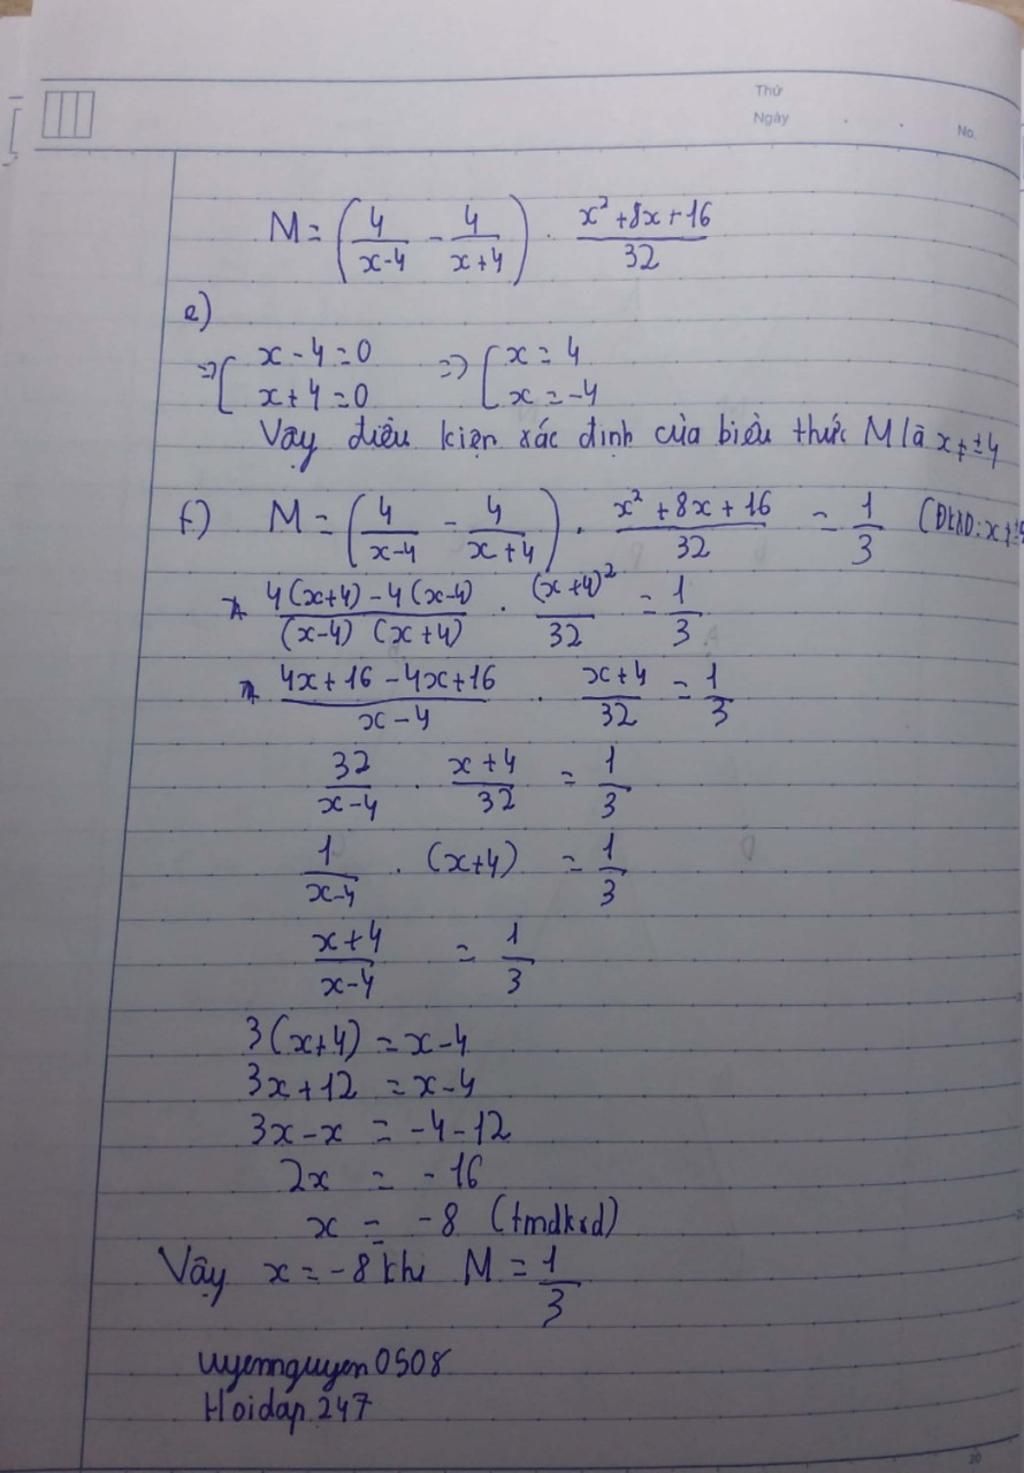 Thứ
Ngày . . No.
M = (4/(x-4) - 4/(x+4)) . (x² + 8x + 16)/32
e)
=> [ x - 4 = 0 => [ x = 4
x + 4 = 0 x = -4
Vậy điều kiện xác định của biểu thức M là x ≠ ±4
f) M = (4/(x-4) - 4/(x+4)) . (x² + 8x + 16)/32 = 1/3 (ĐKXD: x ≠ ±4
(4(x+4) - 4(x-4))/((x-4) (x+4)) . (x+4)²/32 = 1/3
(4x + 16 - 4x + 16)/(x-4) . (x+4)/32 = 1/3
32/(x-4) . (x+4)/32 = 1/3
1/(x-4) . (x+4) = 1/3
(x+4)/(x-4) = 1/3
3(x+4) = x-4
3x + 12 = x-4
3x - x = -4-12
2x = -16
x = -8 (tmdkxd)
Vậy x = -8 khi M = 1/3
uyennguyen0508
Hoidap247
20